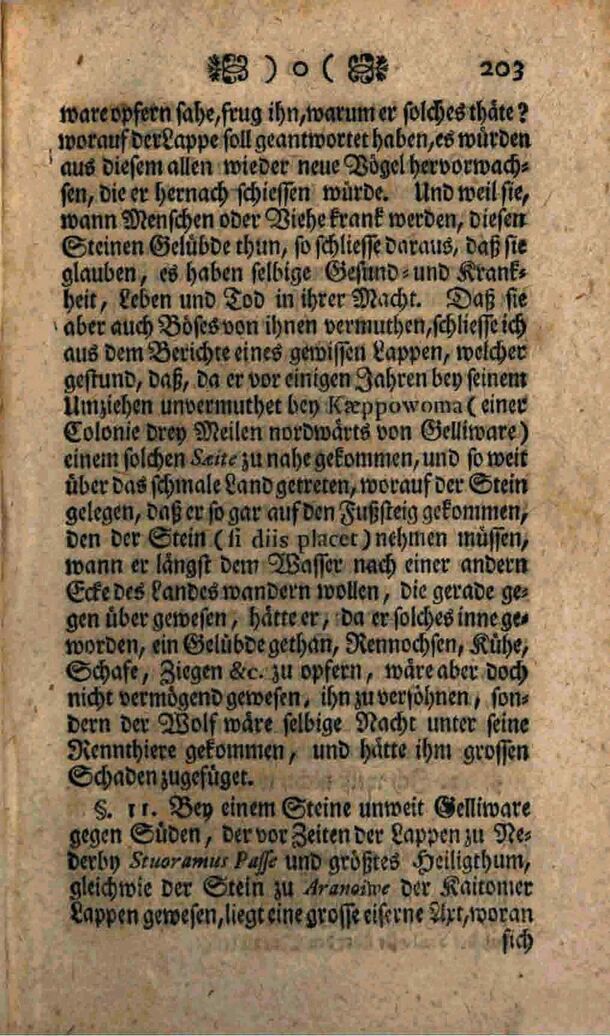 ) o ( 203
ware opfern sahe, frug ihn, warum er solches thäte?
worauf der Lappe soll geantwortet haben, es würden
aus diesem allen wieder neue Vögel hervorwach-
sen, die er hernach schiessen würde. Und weil sie,
wann Menschen oder Viehe krank werden, diesen
Steinen Gelübde thun, so schliesse daraus, daß sie
glauben, es haben selbige Gesund- und Krank-
heit, Leben und Tod in ihrer Macht. Daß sie
aber auch Böses von ihnen vermuthen, schliesse ich
aus dem Berichte eines gewissen Lappen, welcher
gestund, daß, da er vor einigen Jahren bey seinem
Umziehen unvermuthet bey Kæppowoma (einer
Colonie drey Meilen nordwärts von Gelliware)
einem solchen Sæite zu nahe gekommen, und so weit
über das schmale Land getreten, worauf der Stein
gelegen, daß er so gar auf den Fußsteig gekommen,
den der Stein (si diis placet) nehmen müssen,
wann er längst dem Wasser nach einer andern
Ecke des Landes wandern wollen, die gerade ge-
gen über gewesen, hätte er, da er solches inne ge-
worden, ein Gelübde gethan, Rennochsen, Kühe,
Schafe, Ziegen &c. zu opfern, wäre aber doch
nicht vermögend gewesen, ihn zu versöhnen, son-
dern der Wolf wäre selbige Nacht unter seine
Rennthiere gekommen, und hätte ihm grossen
Schaden zugefüget.
§. 11. Bey einem Steine unweit Gelliware
gegen Süden, der vor Zeiten der Lappen zu Ne-
derby Stuoramus Passe und größtes Heiligthum,
gleichwie der Stein zu Aranoiwe der Kaitomer
Lappen gewesen, liegt eine grosse eiserne Axt, woran
sich